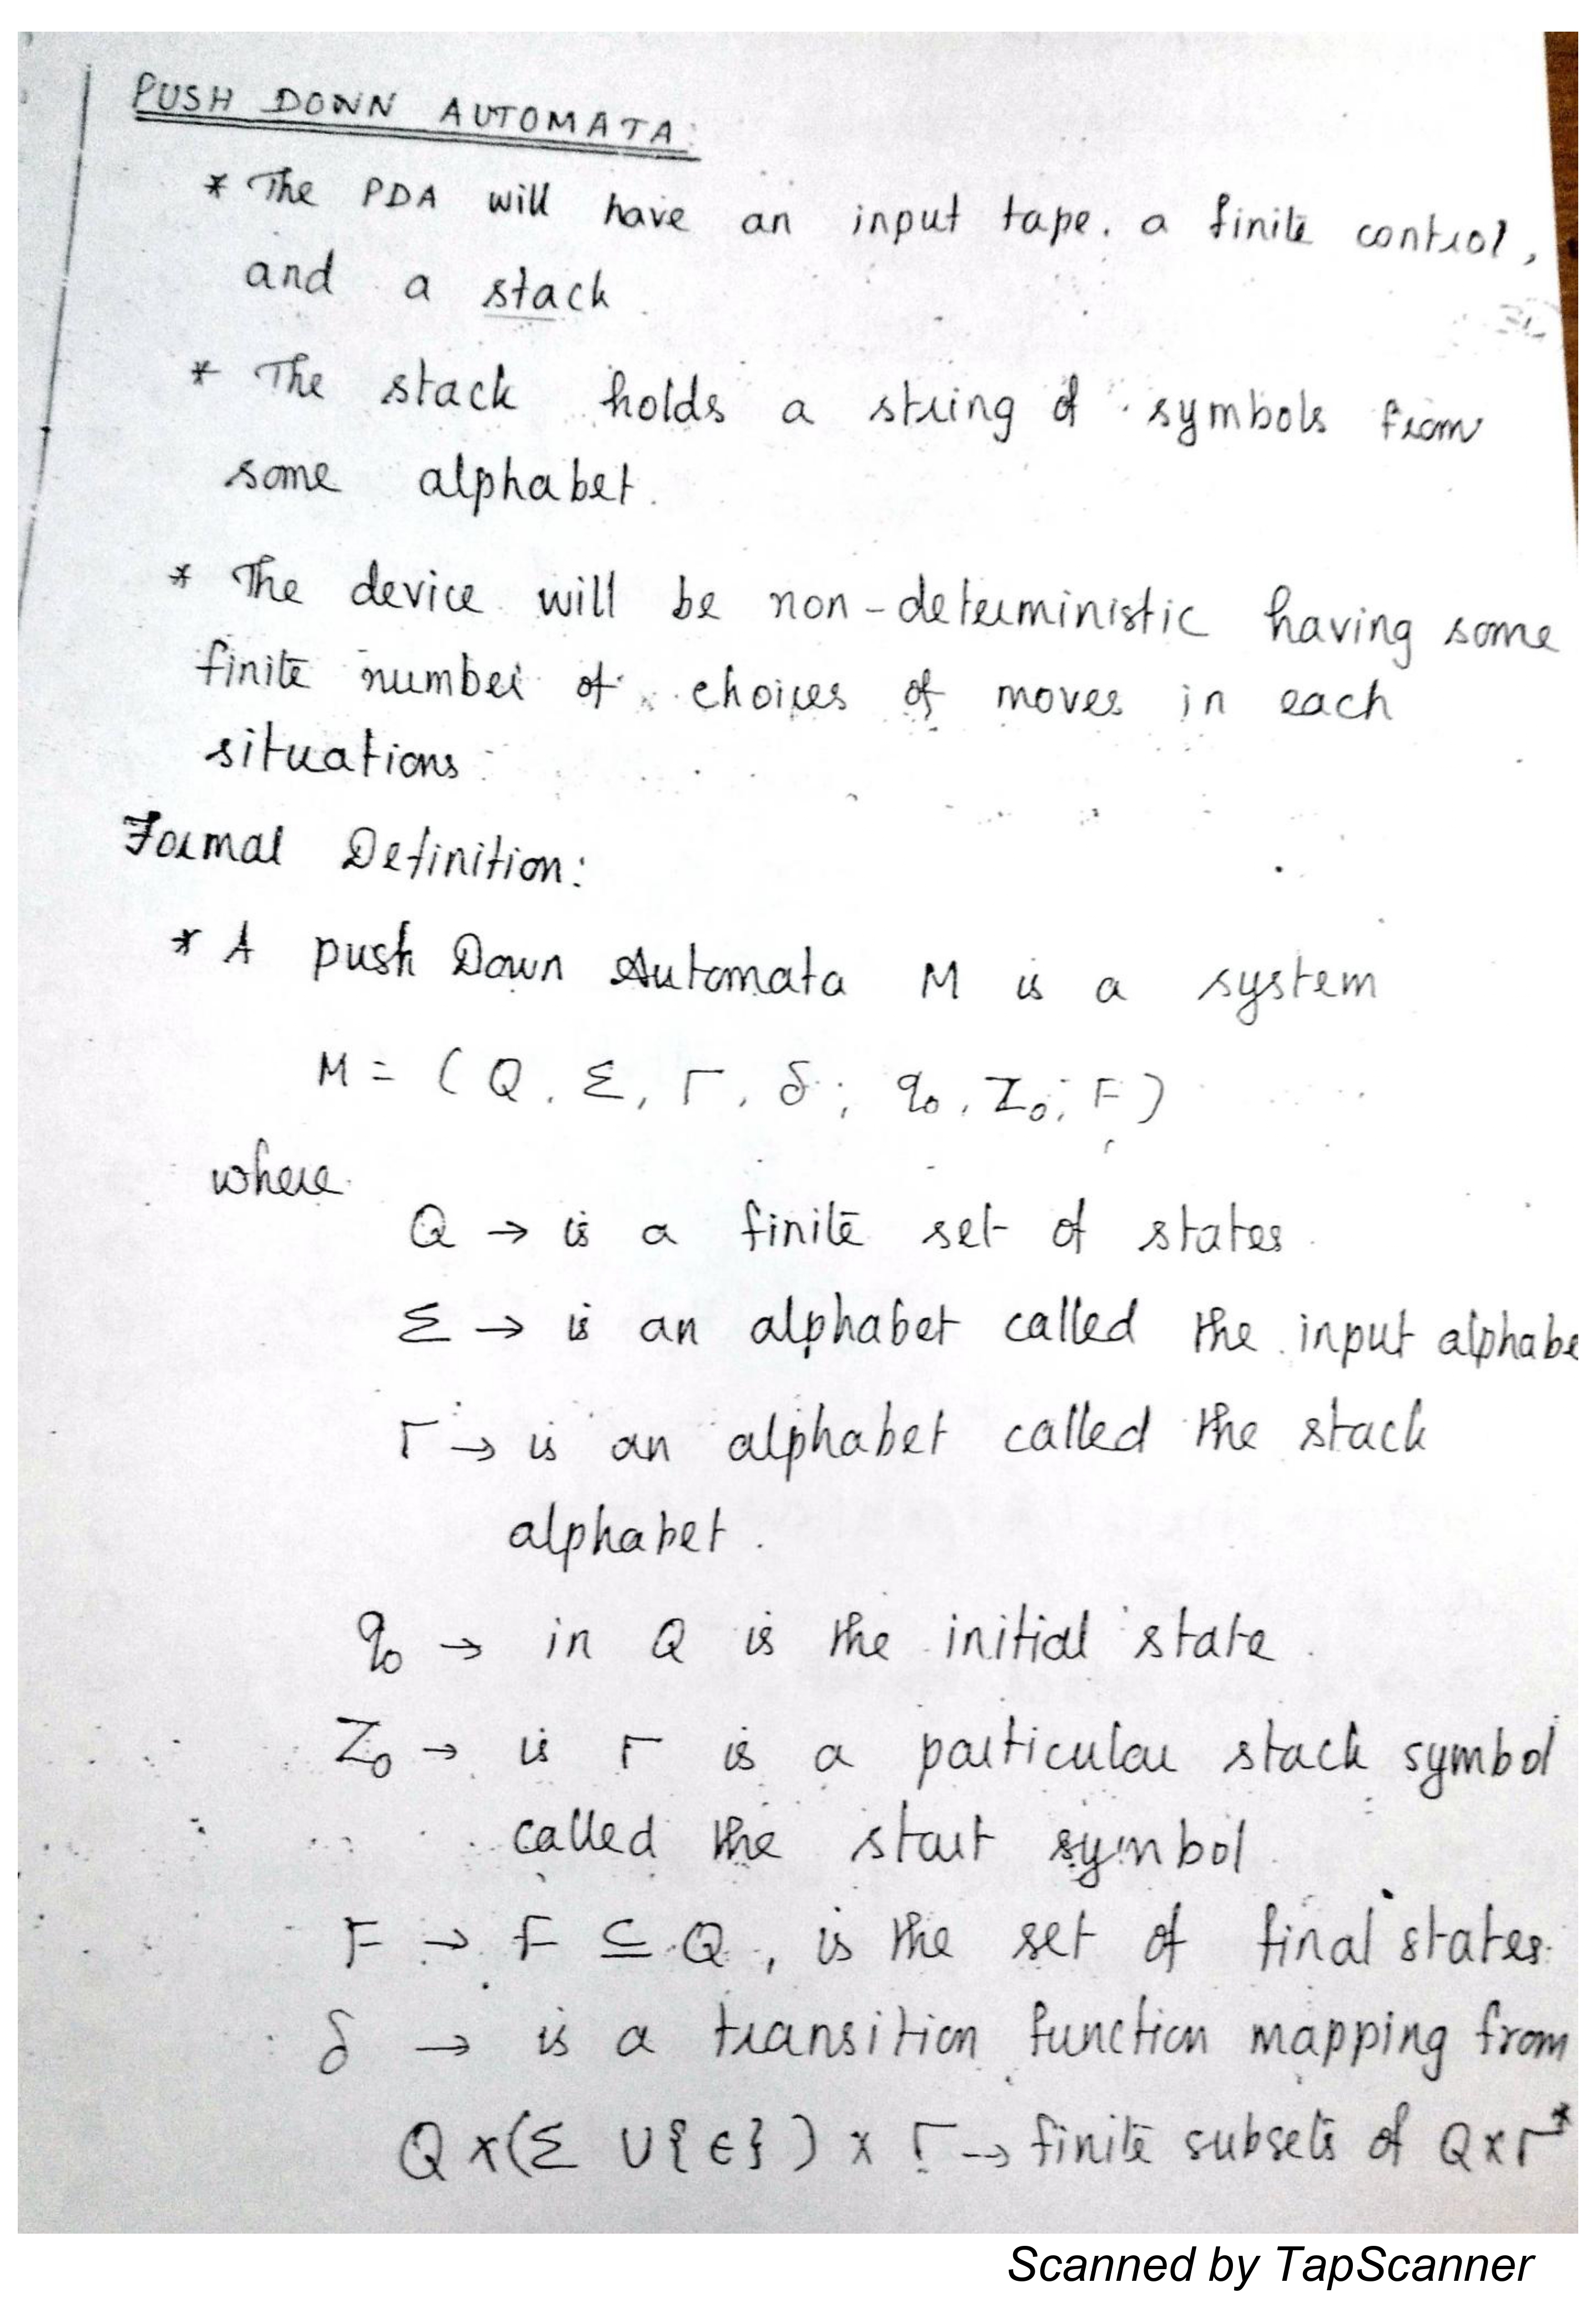 PUSH DOWN AUTOMATA:
* The PDA will have an input tape, a finite control,
and a stack.
* The stack holds a string of symbols from
some alphabet.
* The device will be non-deterministic having some
finite number of choices of moves in each
situations.
Formal Definition:
* A push Down Automata M is a system
M = (Q, Σ, Γ, δ, q₀, Z₀, F)
where
Q → is a finite set of states.
Σ → is an alphabet called the input alphabe
Γ → is an alphabet called the stack
alphabet.
q₀ → in Q is the initial state.
Z₀ → is Γ is a particular stack symbol
called the start symbol.
F → F ⊆ Q, is the set of final states.
δ → is a transition function mapping from
Q x (Σ ∪ {ϵ}) x Γ → finite subsets of Q x Γ*
Scanned by TapScanner